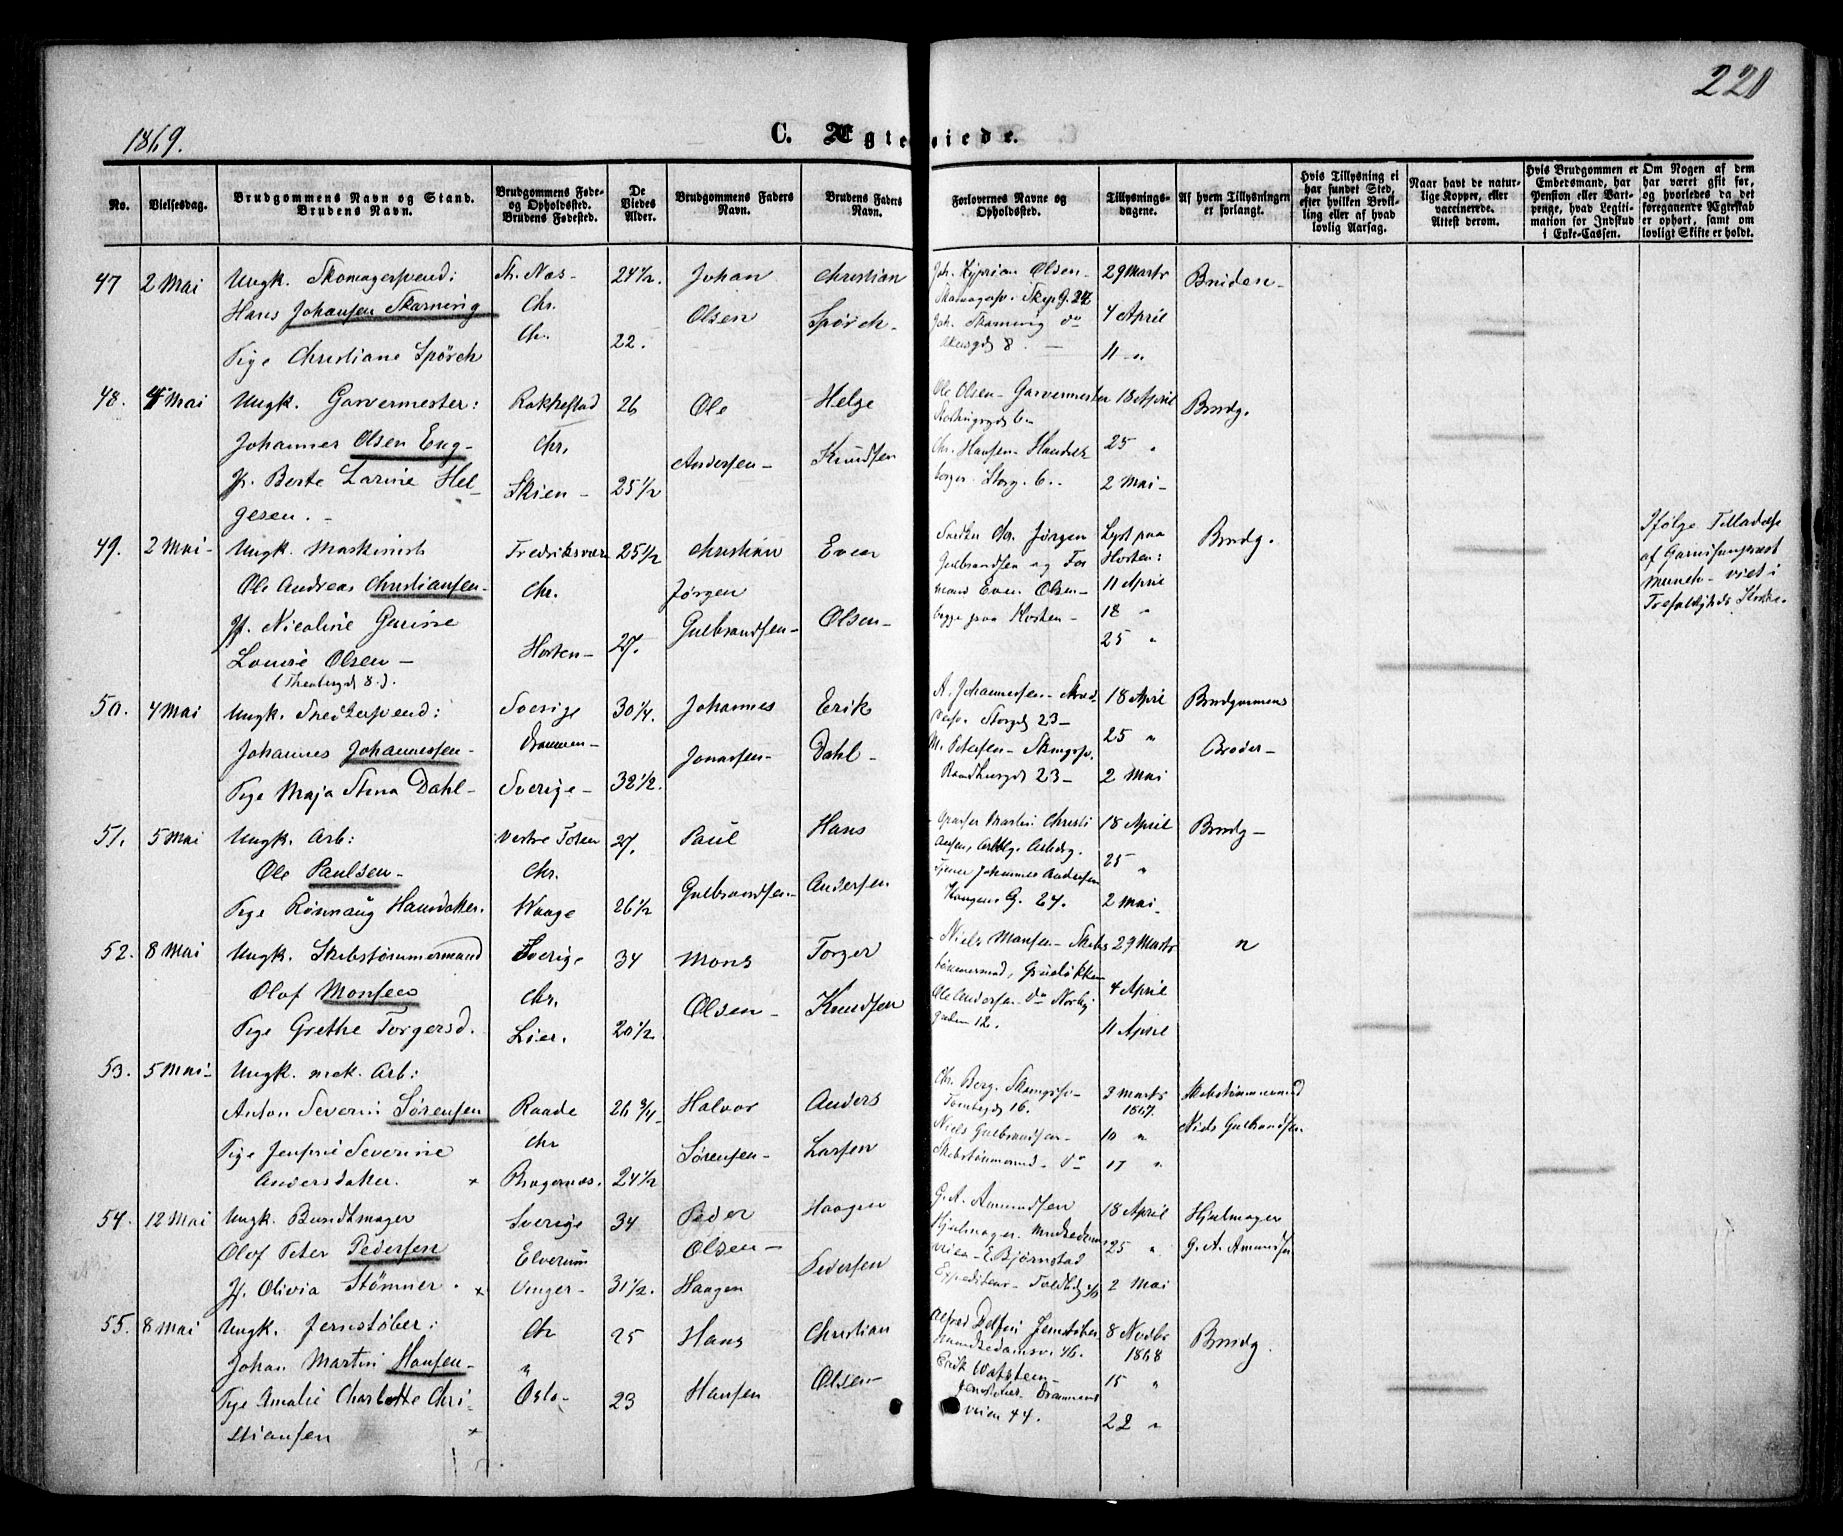 220
1869.
C. Ægteviede.
No.
Vielsesdag.
Brudgommens Navn og Stand.
Brudens Navn.
Brudgommens Føde-
og Opholdssted.
Brudens Fødested.
De
Viedes
Alder.
Brudgommens Faders
Navn.
Brudens Faders
Navn.
Forlovernes Navne og
Opholdssted.
Tillysnings-
dagene.
Af hvem Tillysningen
er forlangt.
Hvis Tillysning ei
har fundet Sted,
efter hvilken Bevil-
ling eller af hvad
lovlig Aarsag.
Naar havt de natur-
lige Kopper, eller
vaccinerede.
Attest derom.
Hvis Brudgommen er
Embedsmand, har
Pension eller Vart-
penge, hvad Legiti-
mation for Indskud
i Enke-Cassen.
Om Nogen af dem
har været gift før,
og hvorledes da det
foregaaende Ægteskab
er ophørt, samt om
lovligt Skifte er holdt.
47 2 Mai Ungk. Skomagersvend: St. Næs 24 1/2. Johan Christian Joh. Zyprian Olsen 29 Marts Bruden
Hans Johansen Skarning Chr. Olsen Spörch 4 April
Chr. 22. 8. 11 "
Pige Christiane Spörch
48. 4 Mai Ungk. Garvermester: Rakkestad 26 Ole Helge Ole Olsen Garvermester 18 April Brudg.
Johannes Olsen Eng Chr. Andersen Knudsen Chr. Hansen 25 "
J. Berte Larine Hel- Skien 25 1/2 Storg. 6. 2 Mai
gesen.
49. 2 Mai Ungk. Maskinist Fredriksværn 25 1/2 Christian Even Jørgen Lyst paa Brudg. Ifølge Tilladelse
Ole Andreas Christiansen Chr. Jørgen Gulbrandsen og Horten: af Garnisonsprest
11 April Munch viet i
J. Nicoline Gurine Gulbrandsen Olsen Even Olsen 18 " Trefoldigheds Kirke.
Louise Olsen Horten 27. begge paa Horten 25 "
(Theatergd 8.)
50. 4 Mai Ungk. Snedkersvend: Sverige 30 1/4. Johannes Erik A. Johannessen 18 April Brudgommens
Johannes Johannessen Drammen Jonassen Dahl Storgd 23 25 " Broder
M. Petersen
Pige Maja Stina Dahl Sverige 38 1/2. 23 2 Mai
51. 5 Mai Ungk. Arb: Vestre Toten 27. Paul Hans Martin Christi 18 April Brudg
Ole Paulsen Chr. Gulbrandsen Andersen ansen, 25 "
Tjener Johannes Andersen
Pige Rønnaug Hansdatter. Waage 26 1/2 Kongens G. 27. 2 Mai
52. 8 Mai Ungk. Skibstømmermand Sverige 34 Mons Torger Niels Monsen Skibs 29 Marts "
Olof Monsen Chr. Olsen Knudsen tømmermand, Grünløkken 4 April
Ole Andersen do Norby
Pige Grethe Torgersd. Lier. 20 1/2. gaden 12. 11 April
53. 5 Mai Ungk. mek. Arb: Chr. Berg. 3 Marts Skibstømmermand
Anton Severin Sørensen Raade 26 3/4 Halvor Anders 16. 1867. Niels Gulbrandsen
Chr Sørensen Larsen Niels Gulbrandsen 10 "
Pige Jensine Severine Skibstømmermand do 17 "
Andersdatter. Bragernæs. 24 1/2
54. 12 Mai Ungk. Bundtmager Sverige 34 Peder Haagen G. A. Amundsen 18 April Hjulmager
Olof Peter Pedersen Elverum Olsen Pedersen Hjulmager 25 " G. A. Amundsen
veien E. Bjørnstad
J. Olivia Stømner Vinger 31 1/2. Haagen Expediteur Toldbdg 2 Mai
55. 8 Mai Ungk. Jernstøber: Chr 25 Hans Christian Alfred Delfin Jernstøber 8 Novbr Brudg.
Johan Martin Hansen " Munkedamsv. 46. 1868
Erik Watsteen 15 "
Pige Amalie Charlotte Chri Oslo 23 Hansen Olsen Jernstøber Drammens
veien 44. 22 "
stiansen